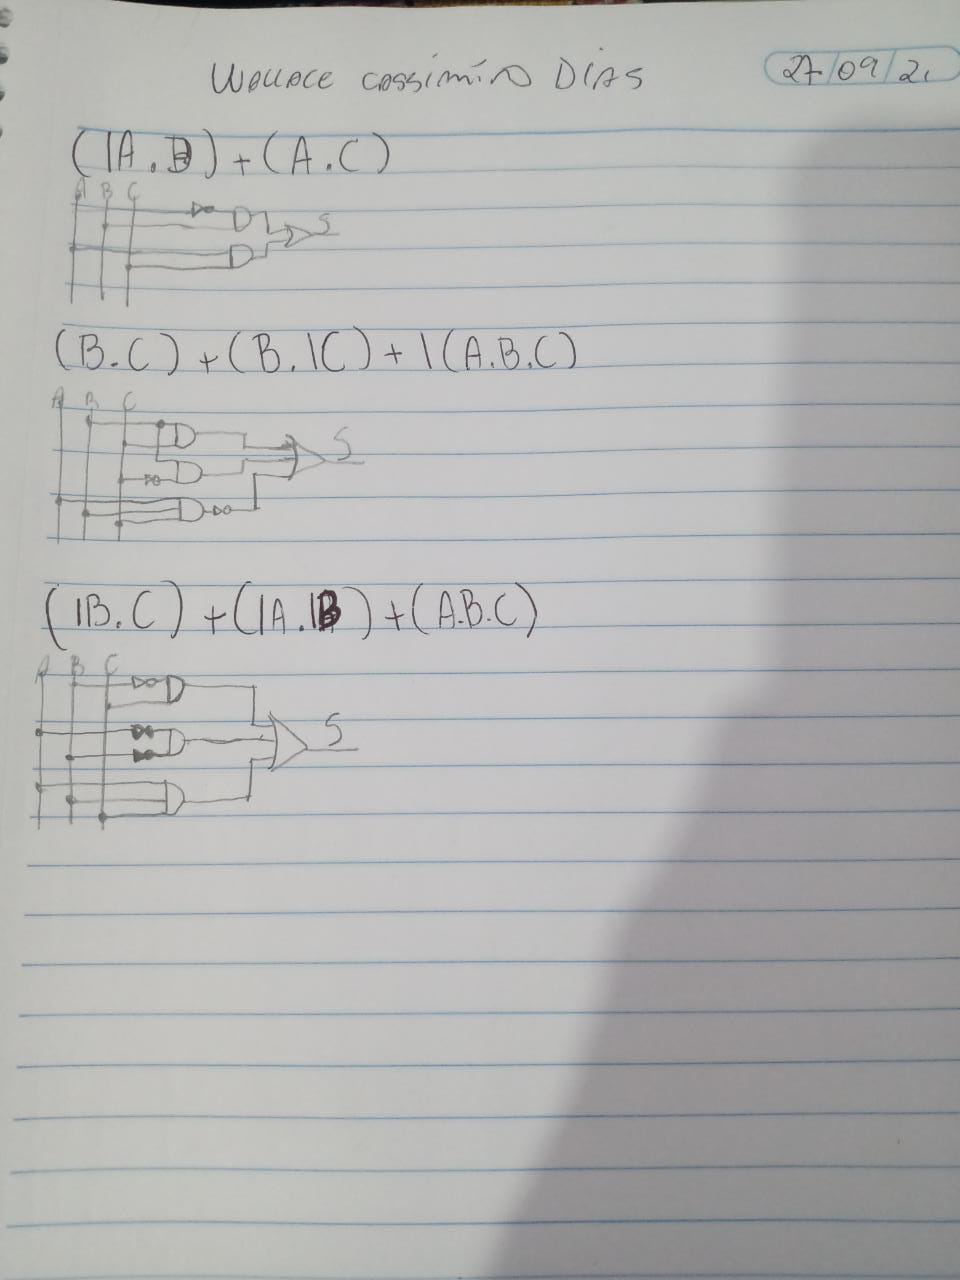 Wallace Cassimiro Dias 27/09/21
(|A.B)+(A.C)
A B C
S
(B.C)+(B.|C)+|(A.B.C)
A B C
S
(|B.C)+(|A.|B)+(A.B.C)
A B C
S